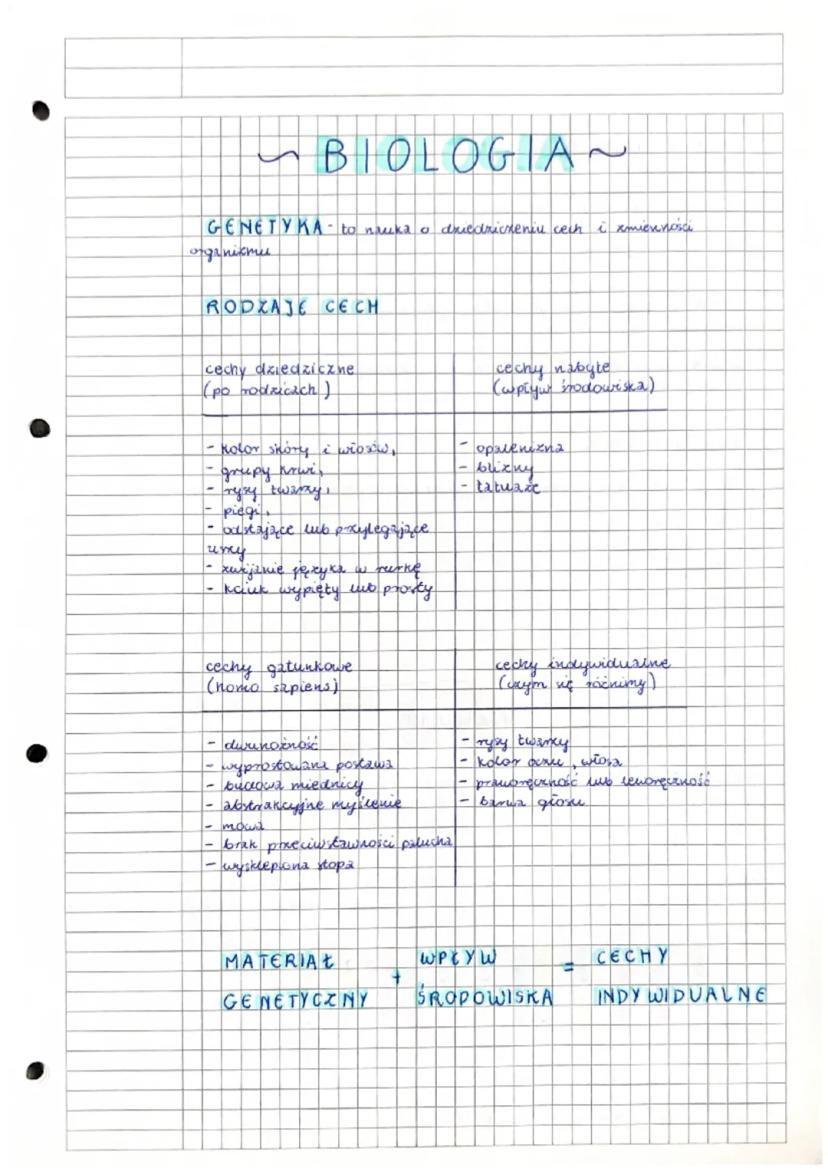 ~ BIOLOGIA ~
GENETYKA - to nauka o dziedziczeniu cech i zmienności
organizmu
RODZAJE CECH
cechy dziedziczne
(po rodzicach)
cechy nabyte
(wpływ środowiska)
- kolor skóry i włosów,
- grupy krwi,
- rysy twarzy,
- piegi,
- odstające lub przylegające
uszy
- zwijanie języka w rurkę
- kciuk wypięty lub prosty
- opalenizna
- blizny
- tatuaże
cechy gatunkowe
(homo sapiens)
cechy indywidualne
(czym się różnimy)
- dwunożność
- wyprostowana postawa
- budowa miednicy
- abstrakcyjne myślenie
- mowa
- brak przeciwstawności palucha
- wysklepiona stopa
- rysy twarzy
- kolor oczu, włosa
- praworęczność lub leworęczność
- barwa głosu
MATERIAŁ
GENETYCZNY
+
WPŁYW
ŚRODOWISKA
=
CECHY
INDYWIDUALNE